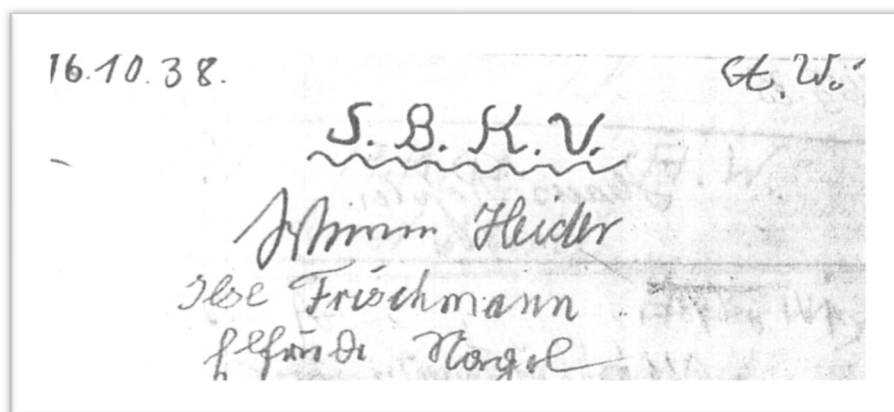 16.10.38. St. W.
S. B. K. V.
Heider
Ilse Frischmann
Elfriede Nagel